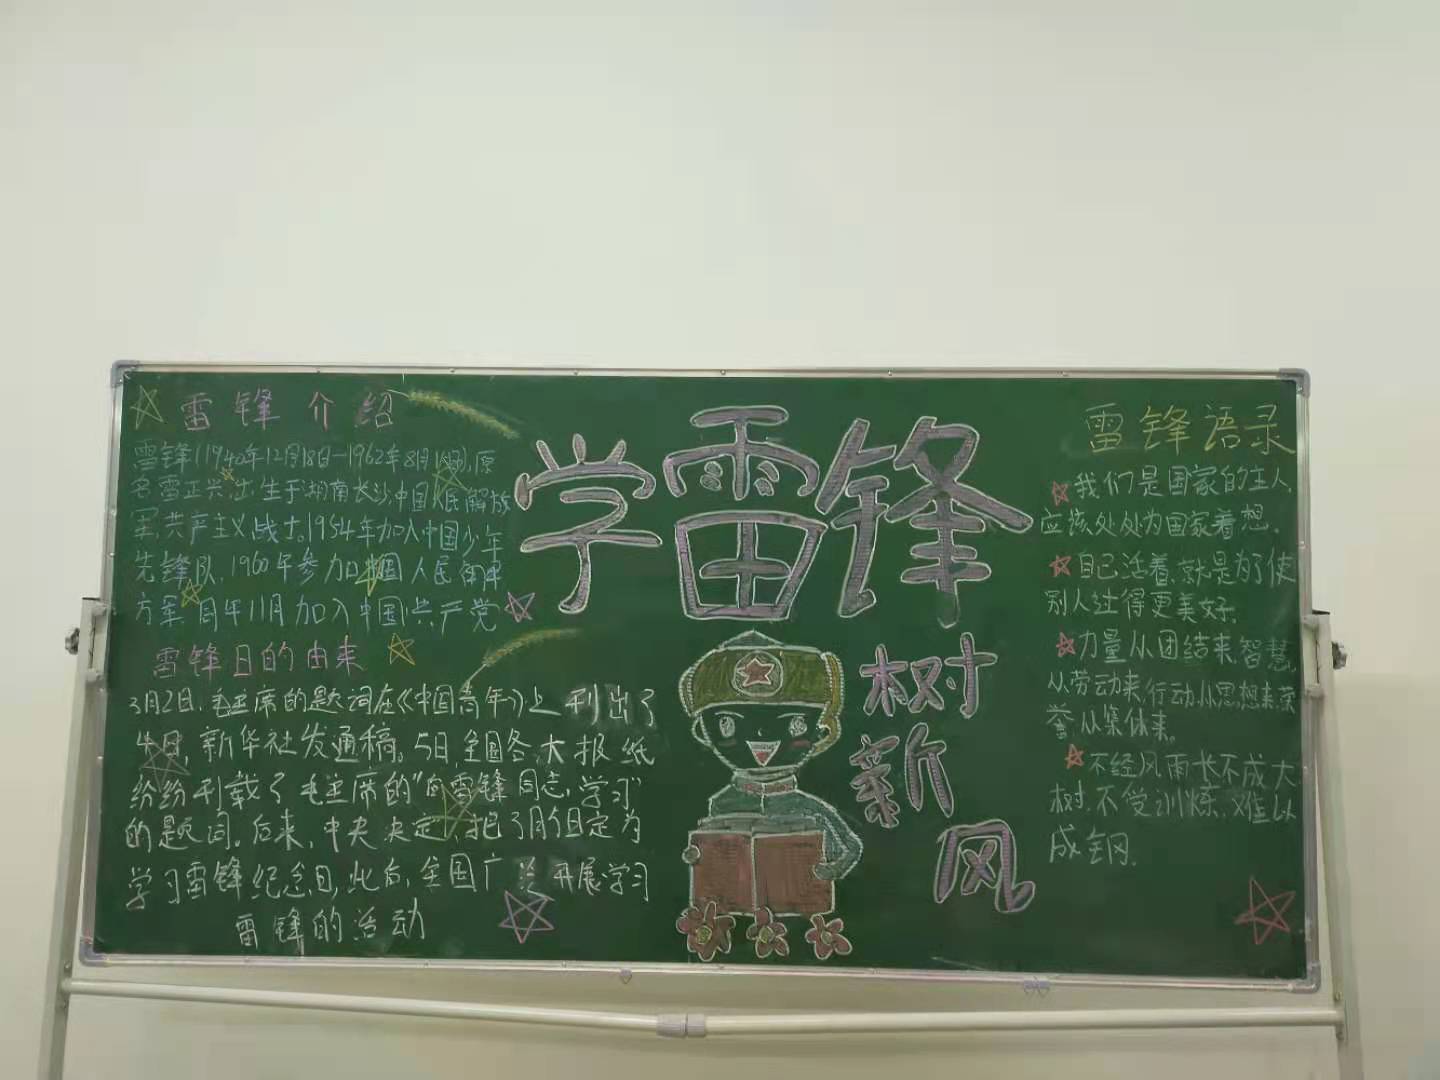 雷锋介绍
雷锋(1940年12月18日-1962年8月15日),原
名雷正兴,出生于湖南长沙,中国人民解放
军,共产主义战士。1954年加入中国少年
先锋队,1960年参加中国人民解放
方军,同年11月加入中国共产党
雷锋日的由来
3月2日,毛主席的题词在《中国青年》上刊出了
4日,新华社发通稿。5日,全国各大报纸
纷纷刊载了毛主席的"向雷锋同志学习"
的题词。后来,中央决定,把3月5日定为
学习雷锋纪念日,此后,全国广泛开展学习
雷锋的活动
学雷锋
树
新
风
雷锋语录
我们是国家的主人,
应该处处为国家着想。
自己活着,就是为了使
别人过得更美好。
力量从团结来,智慧
从劳动来,行动从思想来,荣
誉从集体来。
不经风雨长不成大
树,不受训炼,难以
成钢。